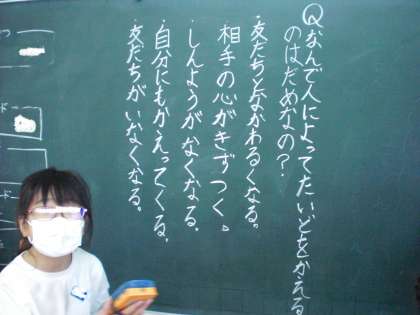 Qなんで人によってたいどをかえる
のはだめなの?
・友だちとなかわるくなる。
相手の心がきずつく。
・しんようがなくなる。
・自分にもかえってくる。
・友だちがいなくなる。